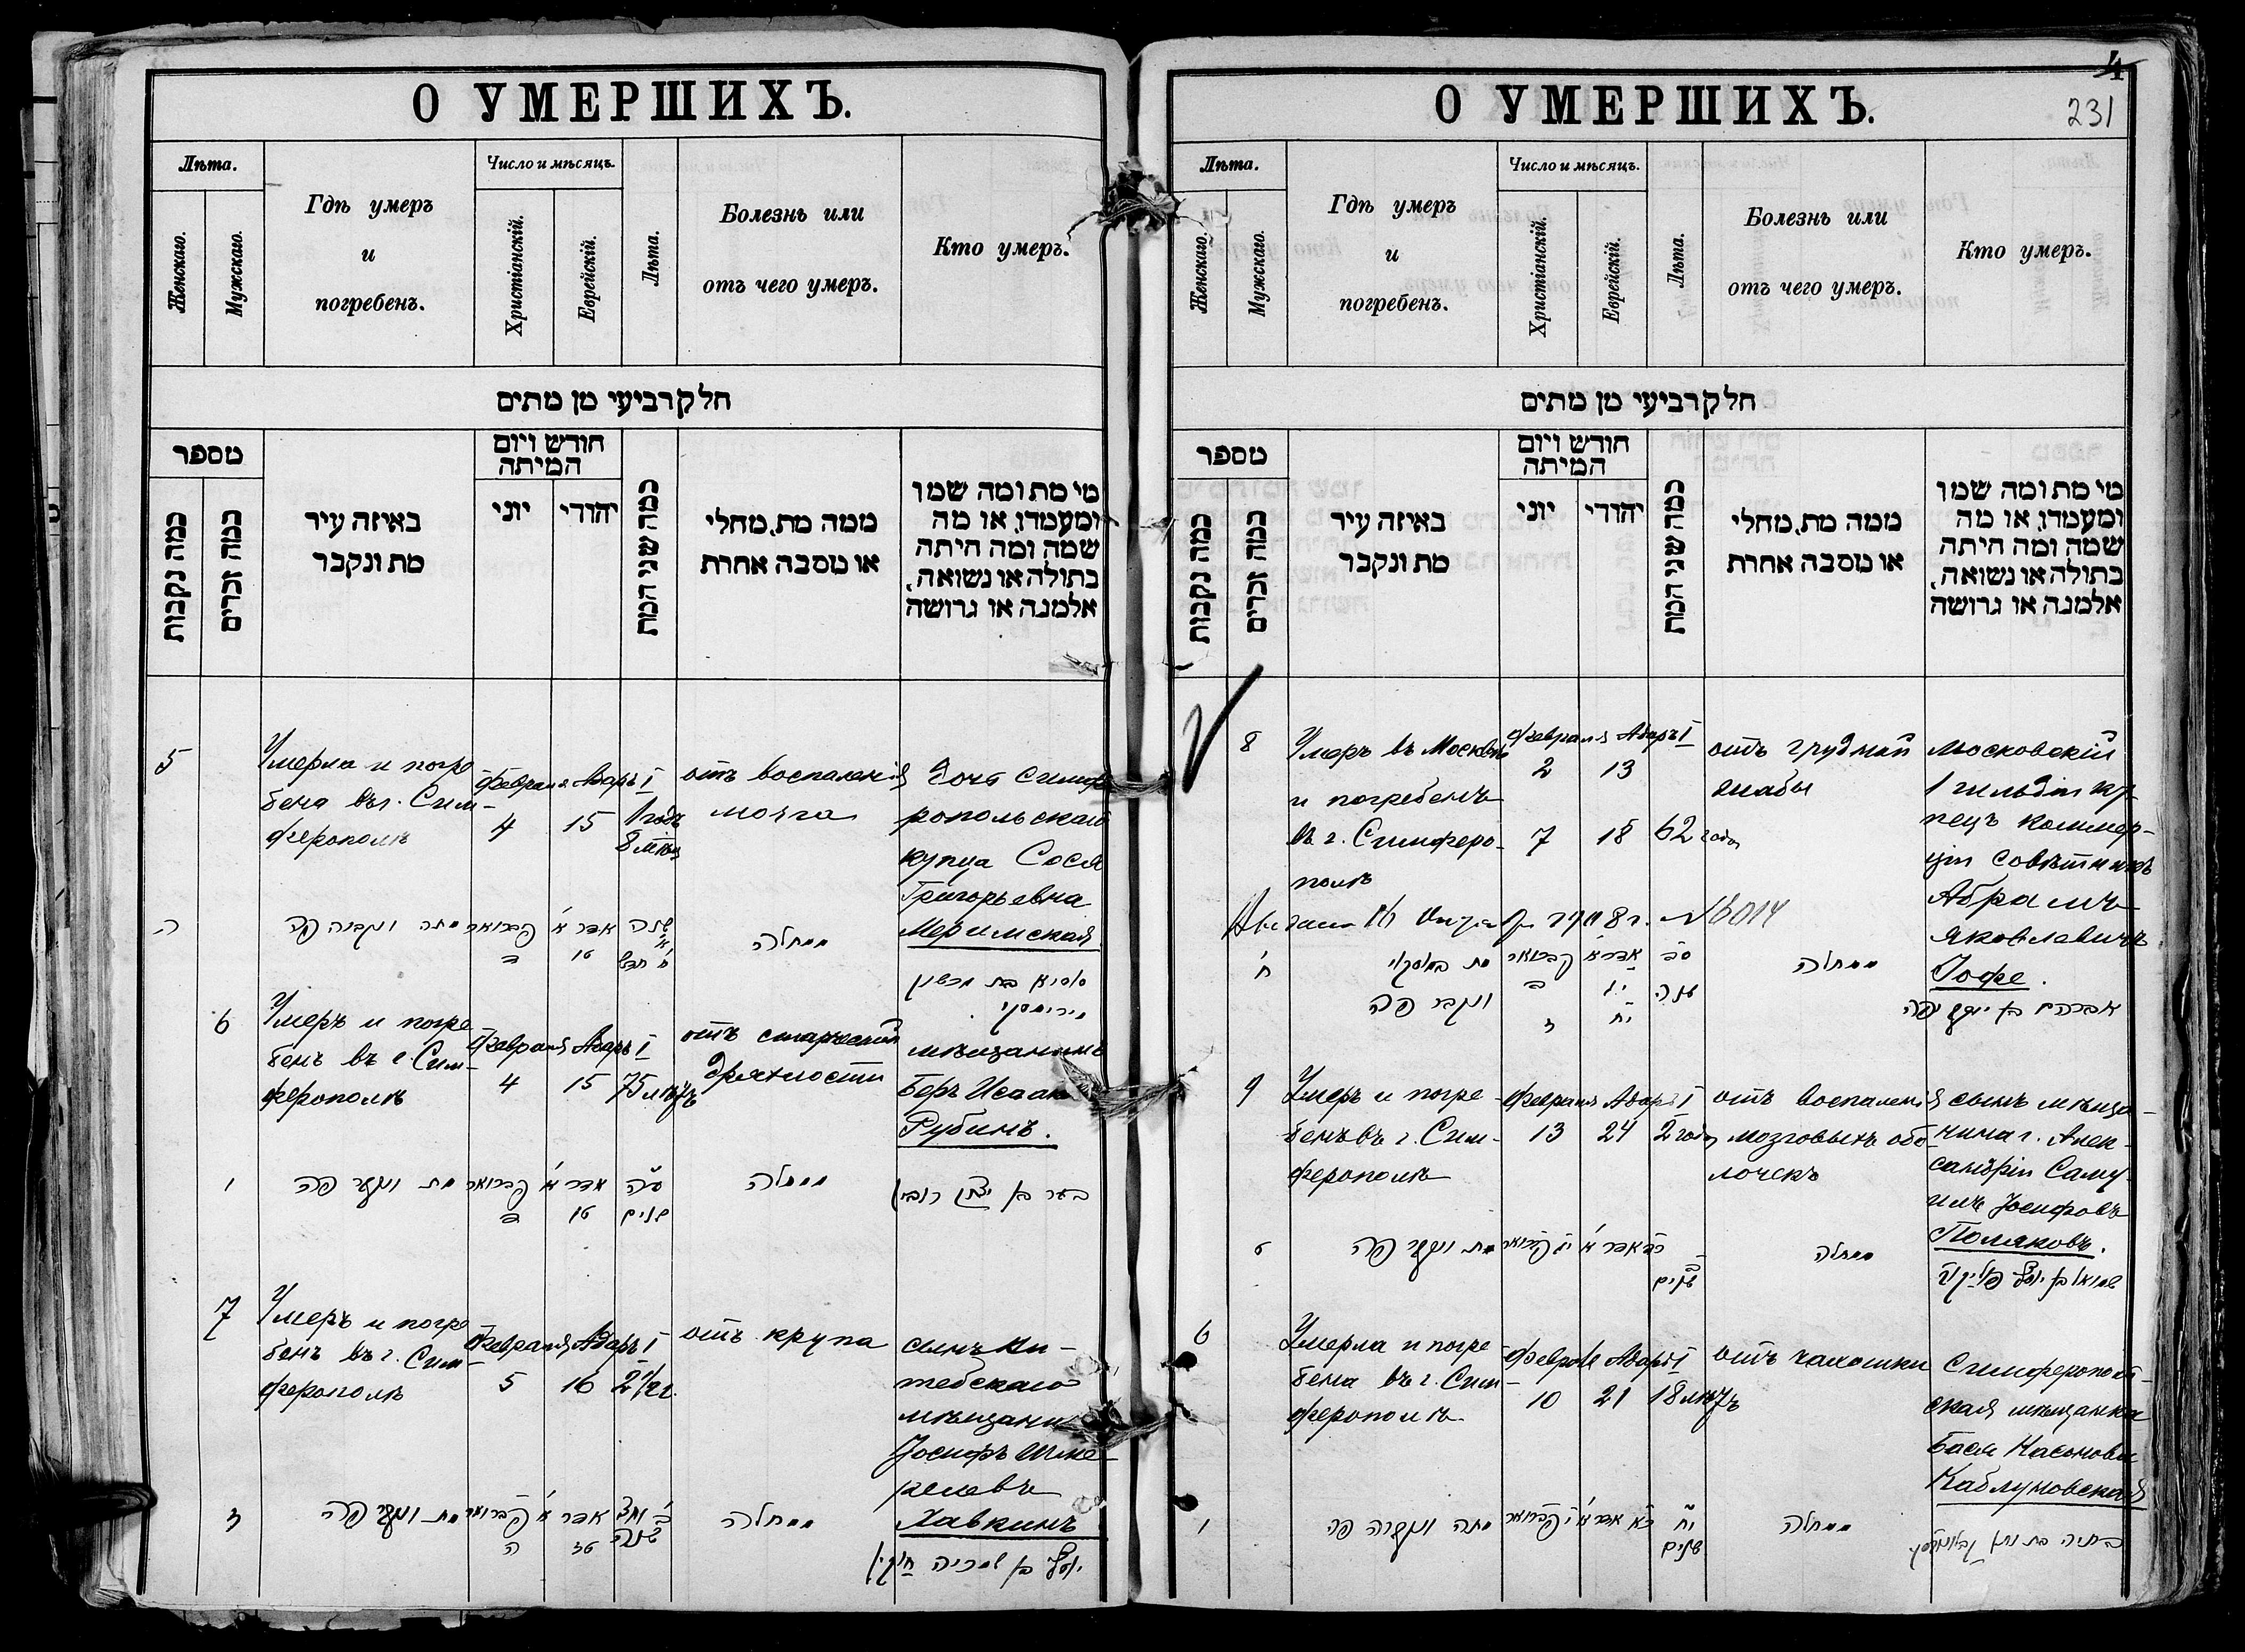 О УМЕРШИХЪ.
Лѣта.
Женскаго.
Мужскаго.
Гдѣ умеръ
и
погребенъ.
Число и мѣсяцъ.
Христіанскій.
Еврейскій.
Лѣта.
Болезнь или
отъ чего умеръ.
Кто умеръ.
חלק רביעי מן מתים
מספר
כמה נקבות
כמה זכרים
באיזה עיר
מת ונקבר
חודש ויום
המיתה
יוני
יהודי
כמה שני המת
ממה מת, מחלי
או מסבה אחרת
מי מת ומה שמו
ומעמדו, או מה
שמה ומה היתה
בתולה או נשואה,
אלמנה או גרושה
5
Умерла и погре
бена въ г. Сим-
ферополѣ
Февраля Адаръ I
4 15
1 годъ
8 мѣц
отъ воспаленія
мозга
Дочь симфе
ропольскаго
купца Сося
Григорьевна
Меримская
ה
מתה ונקברה פה
פברואר
ד
אדר א
טו
שנה
א
ח חדש
ממחלה
סוסיא בת
מירימסקי
6
Умеръ и погре
бенъ въ г Сим-
ферополѣ
Февраля Адаръ I
4 15 75 лѣтъ
отъ старческой
дряхлости
мѣщанинъ
Беръ Исаак
Рубинъ.
ו
מת ונקבר פה
פברואר
ד
אדר א
טו
עה
שנים
ממחלה
בער בן יצחק רובין
7
Умеръ и погре
бенъ въ г. Сим-
ферополѣ
Февраля Адаръ I
5 16 2 1/2 г.
отъ крупа
сынъ Ви-
тебскаго
мѣщани
Іосифъ Шме
релевъ
Хавкинъ
ז
מת ונקבר פה
פברואר
ה
אדר א
טז
ב וחצי
שנה
ממחלה
יוסף בן שמריה חוקין
4
231
О УМЕРШИХЪ.
Лѣта.
Женскаго.
Мужскаго.
Гдѣ умеръ
и
погребенъ.
Число и мѣсяцъ.
Христіанскій.
Еврейскій.
Лѣта.
Болезнь или
отъ чего умеръ.
Кто умеръ.
חלק רביעי מן מתים
מספר
כמה נקבות
כמה זכרים
באיזה עיר
מת ונקבר
חודש ויום
המיתה
יוני
יהודי
כמה שני המת
ממה מת, מחלי
או מסבה אחרת
מי מת ומה שמו
ומעמדו, או מה
שמה ומה היתה
בתולה או נשואה,
אלמנה או גרושה
8
Умеръ въ Москвѣ
и погребенъ
въ г. Симферо-
полѣ
Февраля Адаръ I
2 13
7 18 62 года
отъ грудной
жабы
Московскій
1 гильдіи ку-
пецъ коммер-
ціи совѣтникъ
Абрамъ
Яковлевичъ
Іофе.
г. № 6014
ח
מת במוסקוי
ונקבר פה
פברואר
ב
ז
אדר א
יג
יח
סב
שנה
ממחלה
אברהם בן יעקב יפה
9
Умеръ и погре
бенъ въ г. Сим-
ферополѣ
Февраля Адаръ I
13 24 2 года
отъ воспаленія
мозговыхъ обо-
лочекъ
сынъ мѣща-
нина г. Алек-
сандріи Саму-
илъ Іосифовъ
Поляковъ.
ט
מת ונקבר פה
יג פברואר
כד אדר א
ב
שנים
ממחלה
שמואל בן יוסף
6
Умерла и погре
бена въ г. Сим-
ферополѣ
Февраля Адаръ I
10 21 18 лѣтъ
отъ чахотки
Симферополь-
ская мѣщанка
Бася Насонова
Каблуновская
ו
מתה ונקברה פה
י פברואר
כא אדר א
יח
שנים
ממחלה
בתיה בת נתן